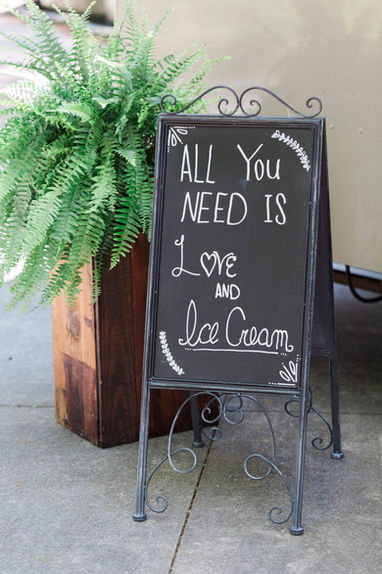 All You
Need is
Love
and
Ice Cream